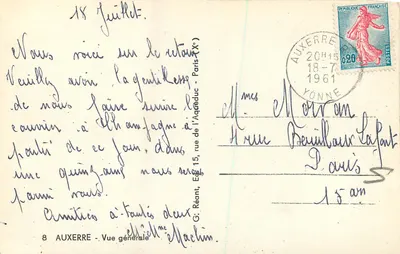 18 Juillet.
Nous voici sur le retour
Veuillez avoir la gentillesse
de nous faire suivre le
courrier à Champagne à
partir de ce jour, dans
une quinzaine nous serons
parmi vous.
Amitiés à toutes deux
Mr et Mme Machin.
8 AUXERRE - Vue générale
G. Réant, Edit. 115, rue de l'Aqueduc - Paris (Xe)
AUXERRE
20H15
18-7
1961
YONNE
0,20
Mmes Morvan
4 rue Lafont
Paris
15 arr